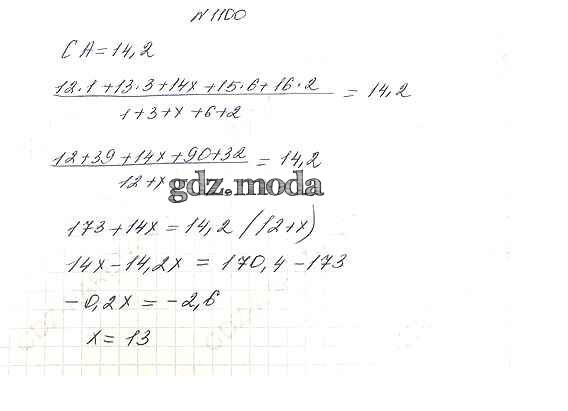 №1100
СА = 14,2
12·1 + 13·3 + 14x + 15·6 + 16·2 = 14,2
1 + 3 + x + 6 + 2
12 + 39 + 14x + 90 + 32 = 14,2
12 + x
gdz.moda
173 + 14x = 14,2 (12 + x)
14x - 14,2x = 170,4 - 173
-0,2x = -2,6
x = 13